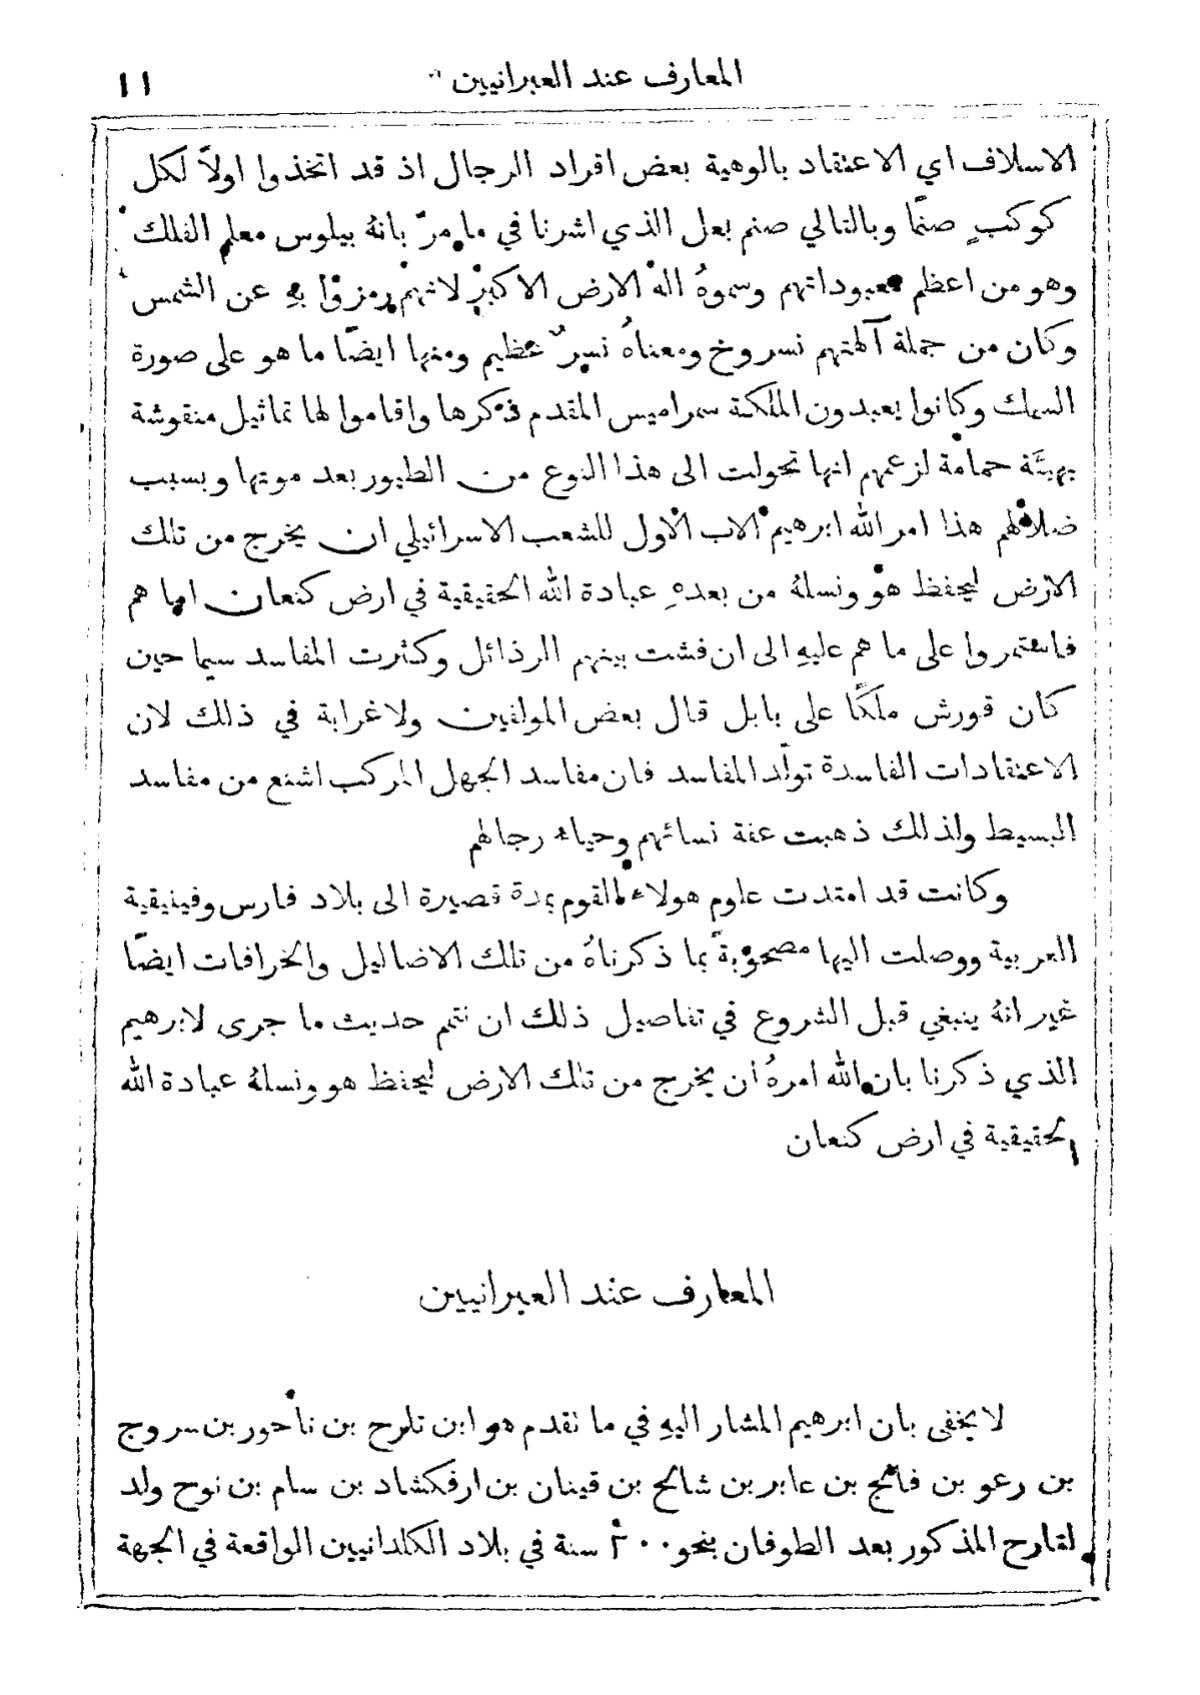 المعارف عند العبرانيين
١١
الاسلاف اي الاعتقاد بالوهية بعض افراد الرجال اذ قد اتخذوا اولاً لكل
كوكبٍ صنمًا وبالتالي صنم بعل الذي اشرنا في ما مرّ بانهُ بيلوس معلم الفلك
وهو من اعظم معبوداتهم وسموهُ اله الارض الاكبر لانهم رمزوا بهِ عن الشمس
وكان من جملة آلهتهم نسروخ ومعناهُ نسرٌ عظيم ومنها ايضًا ما هو على صورة
السمك وكانوا يعبدون الملكة سمراميس المقدم ذكرها واقاموا لها تماثيل منقوشة
بهيئَة حمامة لزعمهم انها تحولت الى هذا النوع من الطيور بعد موتها وبسبب
ضلالهم هذا امر الله ابرهيم الاب الاول للشعب الاسرائيلي ان يخرج من تلك
الارض ليحفظ هو ونسلهُ من بعدهِ عبادة الله الحقيقية في ارض كنعان اما هم
فاستمروا على ما هم عليهِ الى ان فشت بينهم الرذائل وكثرت المفاسد سيما حين
كان قورش ملكًا على بابل قال بعض المولفين ولا غرابة في ذلك لان
الاعتقادات الفاسدة تولّد المفاسد فان مفاسد الجهل المركب اشنع من مفاسد
البسيط ولذلك ذهبت عفة نسائهم وحياء رجالهم
وكانت قد امتدت علوم هولاء القوم بمدة قصيرة الى بلاد فارس وفينيقية
العربية ووصلت اليها مصحوبةً بما ذكرناهُ من تلك الاضاليل والخرافات ايضًا
غير انهُ ينبغي قبل الشروع في تفاصيل ذلك ان نتمم حديث ما جرى لابرهيم
الذي ذكرنا بان الله امرهُ أن يخرج من تلك الارض ليحفظ هو ونسلهُ عبادة الله
الحقيقية في ارض كنعان
المعارف عند العبرانيين
لا يخفى بان ابرهيم المشار اليهِ في ما نقدم هو ابن تارح بن ناحور بن سروج
بن رعو بن فالج بن عابر بن شالح بن قينان بن ارفكشاد بن سام بن نوح ولد
لتارح المذكور بعد الطوفان بنحو ٢٠٠ سنة في بلاد الكلدانيين الواقعة في الجهة